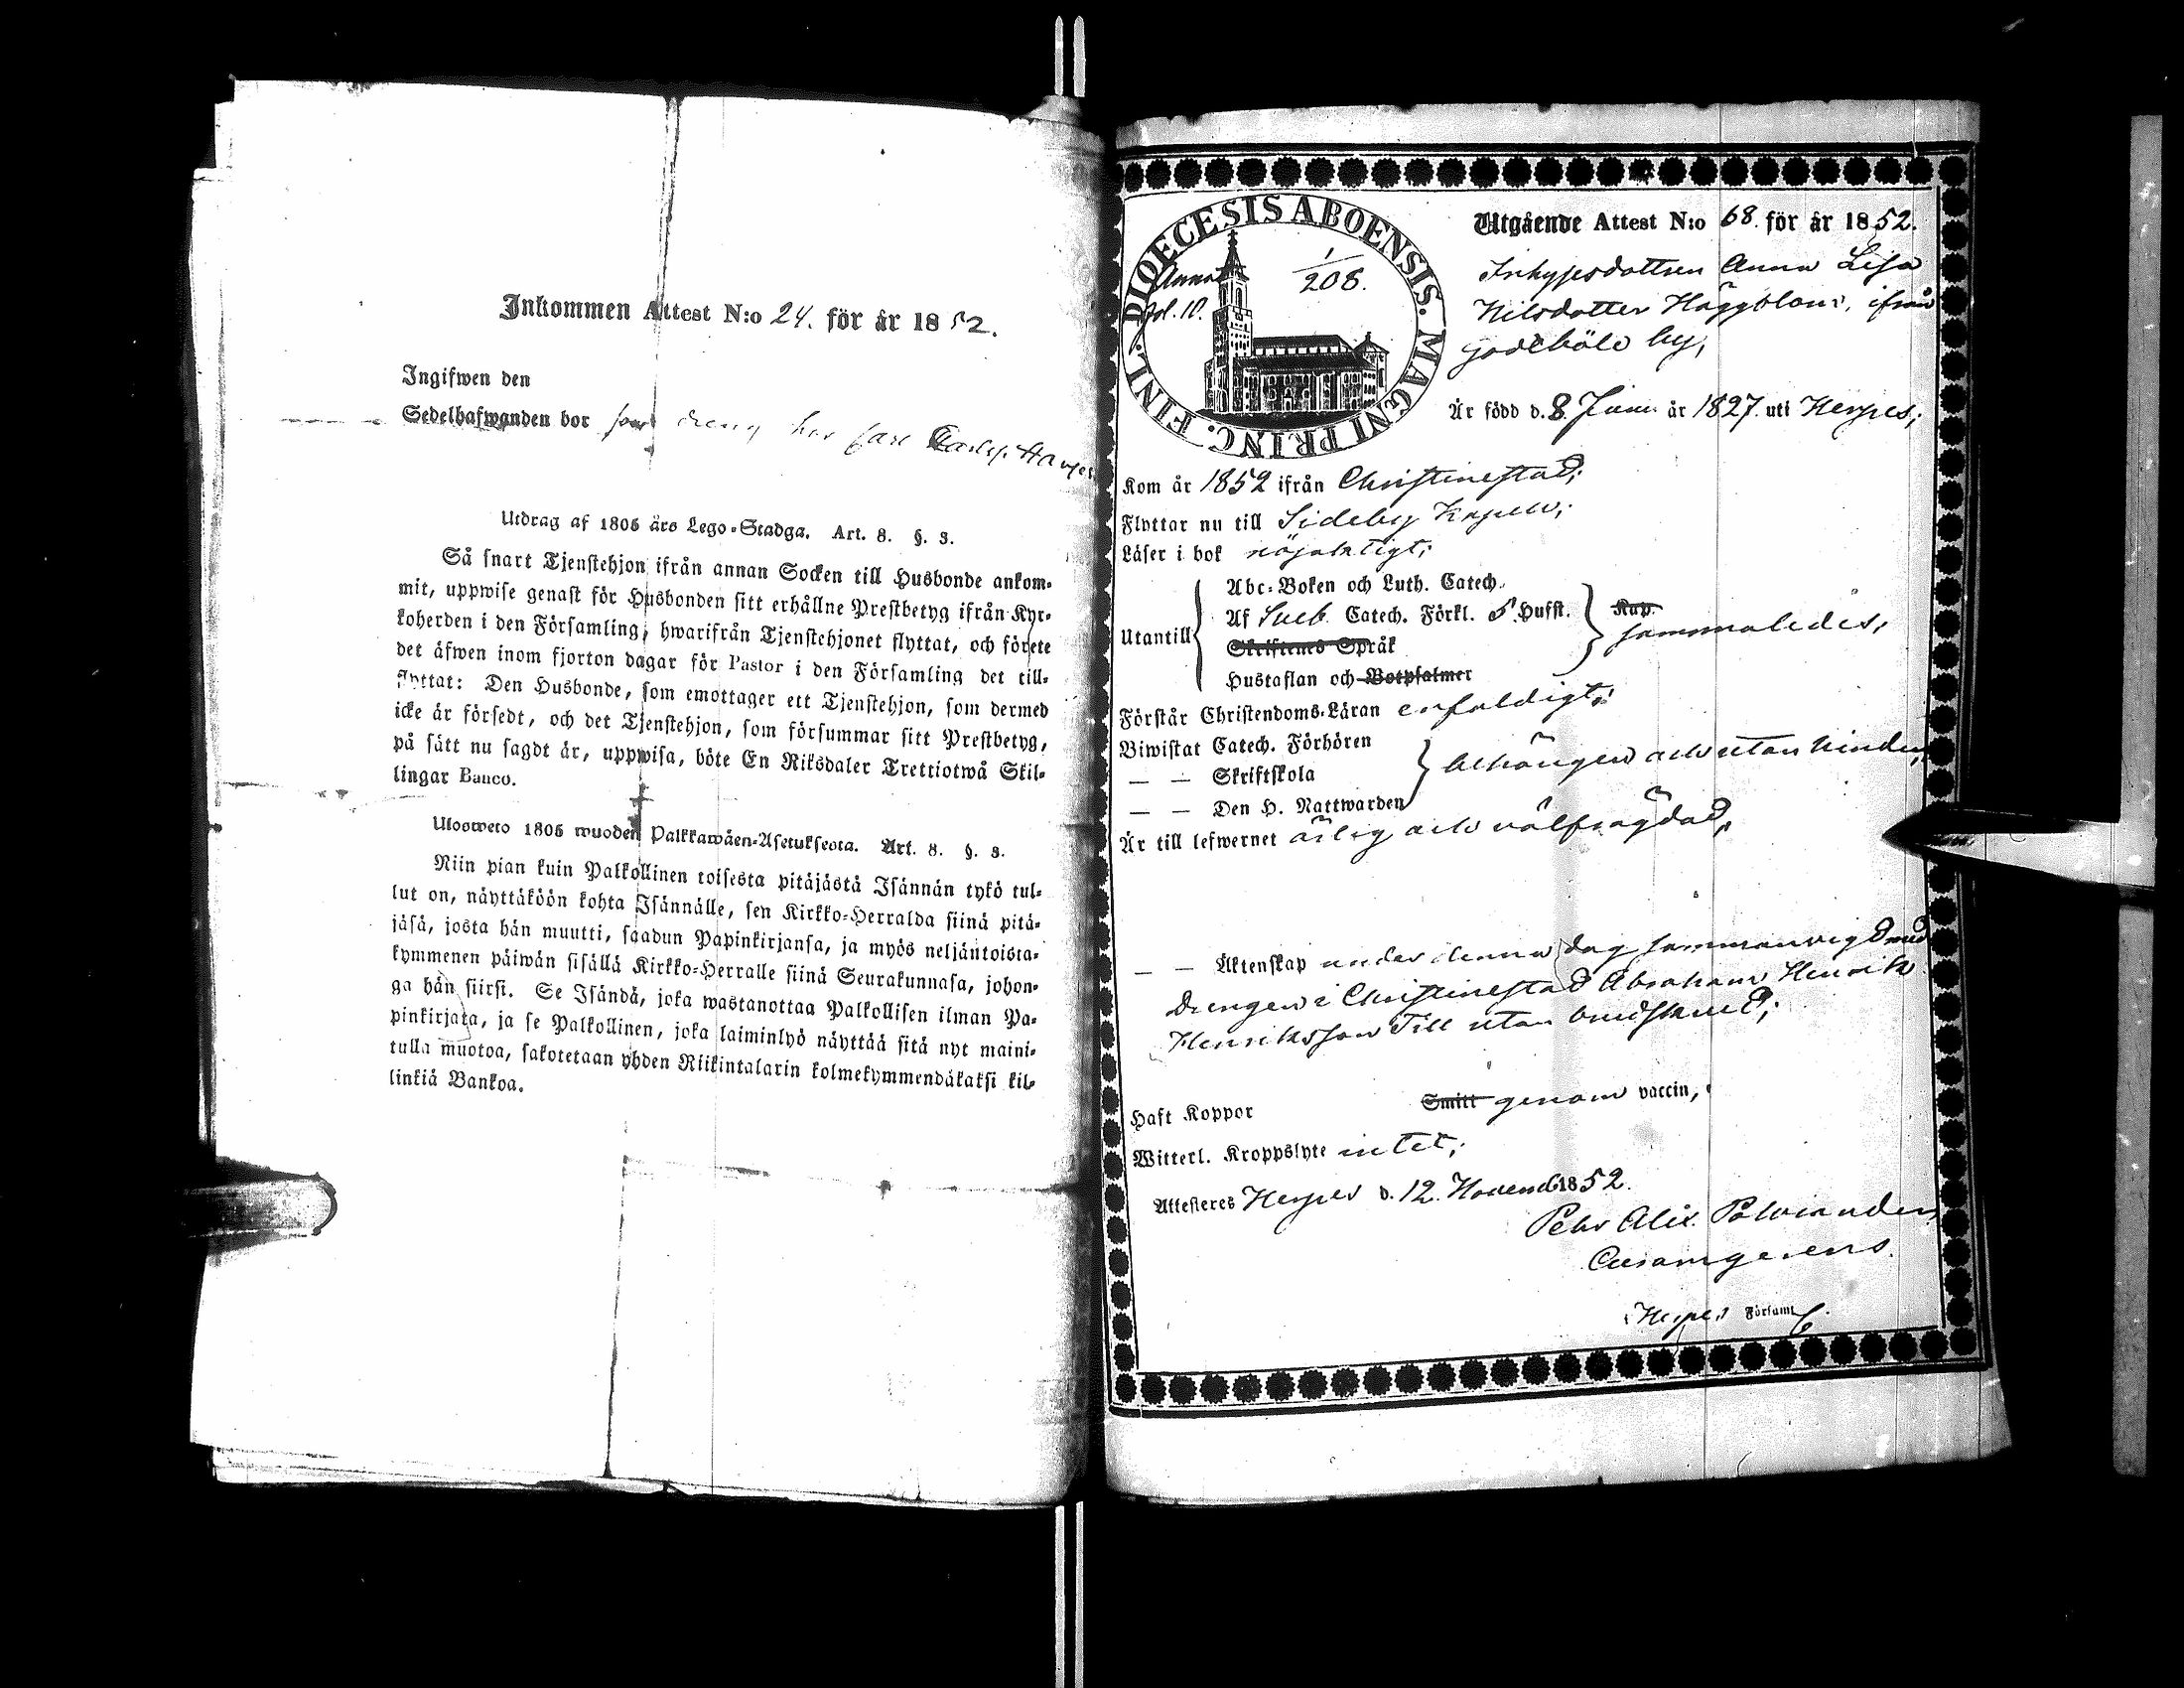 Inkommen Attest N:o 24. för år 1852.
Ingifwen den
Sedelhafwanden bor som dreng hos
Utdrag af 1805 års Lego-Stadga. Art. 8. §. 3.
Så snart Tjenstehjon ifrån annan Socken till Husbonde ankom-
mit, uppwise genast för Husbonden sitt erhållne Prestbetyg ifrån Kyr-
koherden i den Församling, hwarifrån Tjenstehjonet flyttat, och förete
det äfwen inom fjorton dagar för Pastor i den Församling det till-
flyttat: Den Husbonde, som emottager ett Tjenstehjon, som dermed
icke är försedt, och det Tjenstehjon, som försummar sitt Prestbetyg,
på sätt nu sagdt är, uppwisa, böte En Riksdaler Trettiotwå Skil-
lingar Banco.
Ulosweto 1805 wuoden Palkkawäen-Asetuksesta. Art. 8. §. 3.
Niin pian kuin Palkollinen toisesta pitäjästä Isännän tykö tul-
lut on, näyttäköön kohta Isännälle, sen Kirkko-Herralda siinä pitä-
jäsä, josta hän muutti, saadun Papinkirjansa, ja myös neljäntoista-
kymmenen päiwän sisällä Kirkko-Herralle siinä Seurakunnasa, johon-
ga hän siirsi. Se Isändä, joka wastanottaa Palkollisen ilman Pa-
pinkirjata, ja se Palkollinen, joka laiminlyö näyttää sitä nyt maini-
tulla muotoa, sakotetaan yhden Riikintalarin kolmekymmendäkaksi kil-
linkiä Bankoa.
DIOECESIS ABOENSIS. MAGNI PRINC. FINL.
Anna
fol. 10.
1/208.
Utgående Attest N:o 68. för år 1852.
Inhysesdottren Anna Lisa
Nilsdotter Häggblom, ifrån
by,
Är född d. 8 Juni år 1827. uti Kerpes;
Kom år 1852 ifrån Christinestad;
Flyttar nu till Sideby Kapell;
Läser i bok nöjaktigt;
Utantill
Abc-Boken och Luth. Catech.
Af Sveb. Catech. Förkl. 5 Hufst.
Skriftenes Språk
Hustaflan och Botpsalmer
Kap.
sammaledes;
Förstår Christendoms-Läran enfaldigt;
Biwistat Catech. Förhören
— — Skriftskola
— — Den H. Nattwarden
behörigen och utan hinder,
Är till lefwernet ärlig och välfrägdad,
— — Äktenskap under denna dag sammanvigd med
drengen i Christinestad Abraham Henrik
Henriksson Till utan
Haft Koppor Smitt genom vaccin,
Witterl. Kroppslyte intet;
Attesteras Kerpes d. 12. Novemb 1852.
Pehr Alex.
Curamgerens.
i Kerpes Församl